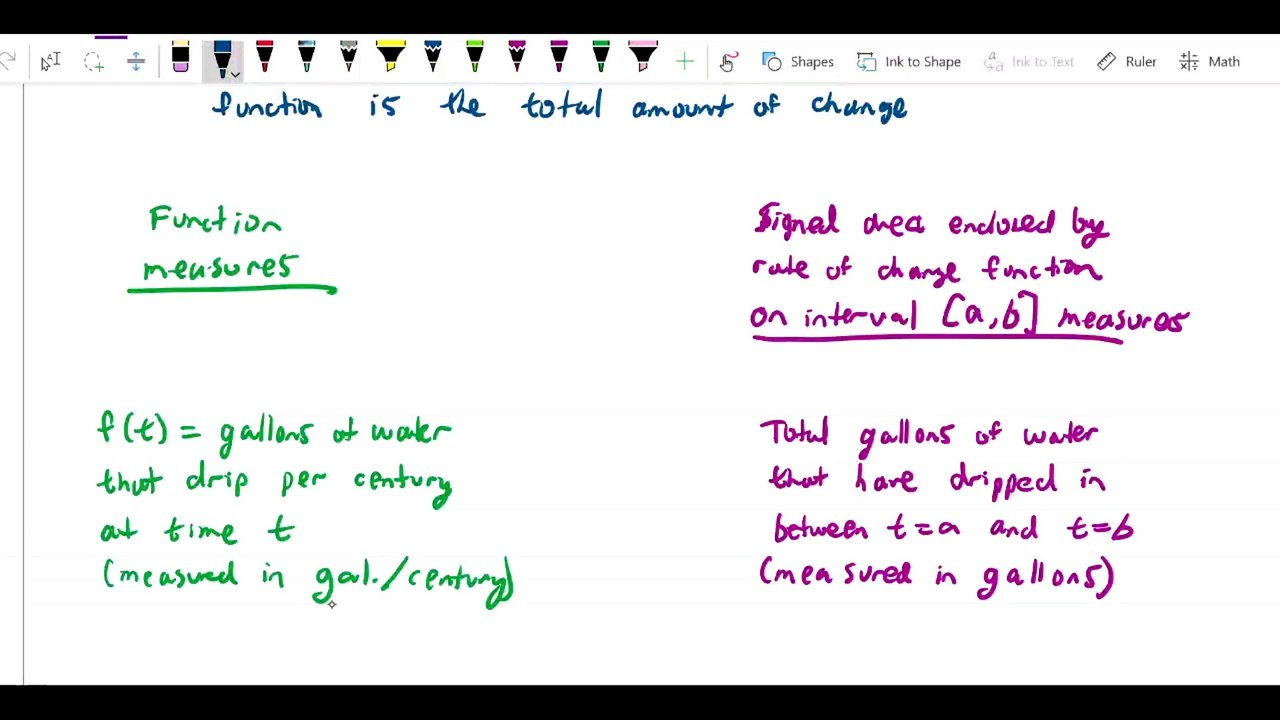 Shapes Ink to Shape Ink to Text Ruler Math
function is the total amount of change
Function
measures
Signed area enclosed by
rate of change function
on interval [a,b] measures
f(t) = gallons of water
that drip per century
at time t
(measured in gal./century)
Total gallons of water
that have dripped in
between t=a and t=b
(measured in gallons)